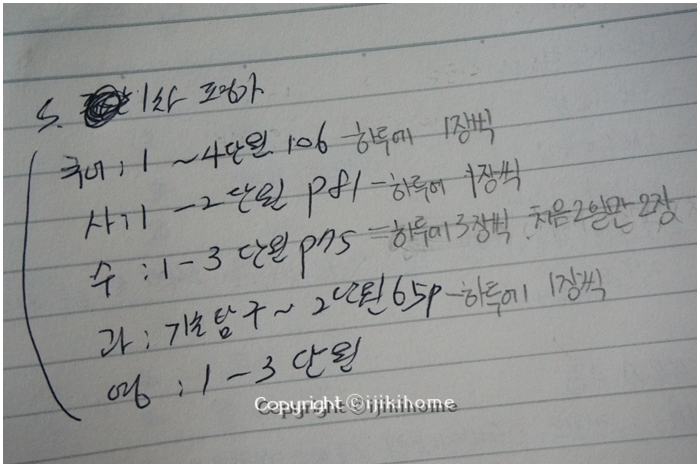 5. 1차 평가
국어 : 1 ~4단원 106 하루에 1장씩
사기 -2단원 p81 -하루에 1장씩
수 : 1-3 단원 p75 =하루에 3장씩. 처음 2일만 2장
과 : 기초탐구~ 2단원 65p -하루에 1장씩
영 : 1-3 단원
Copyright ⓒijikihome